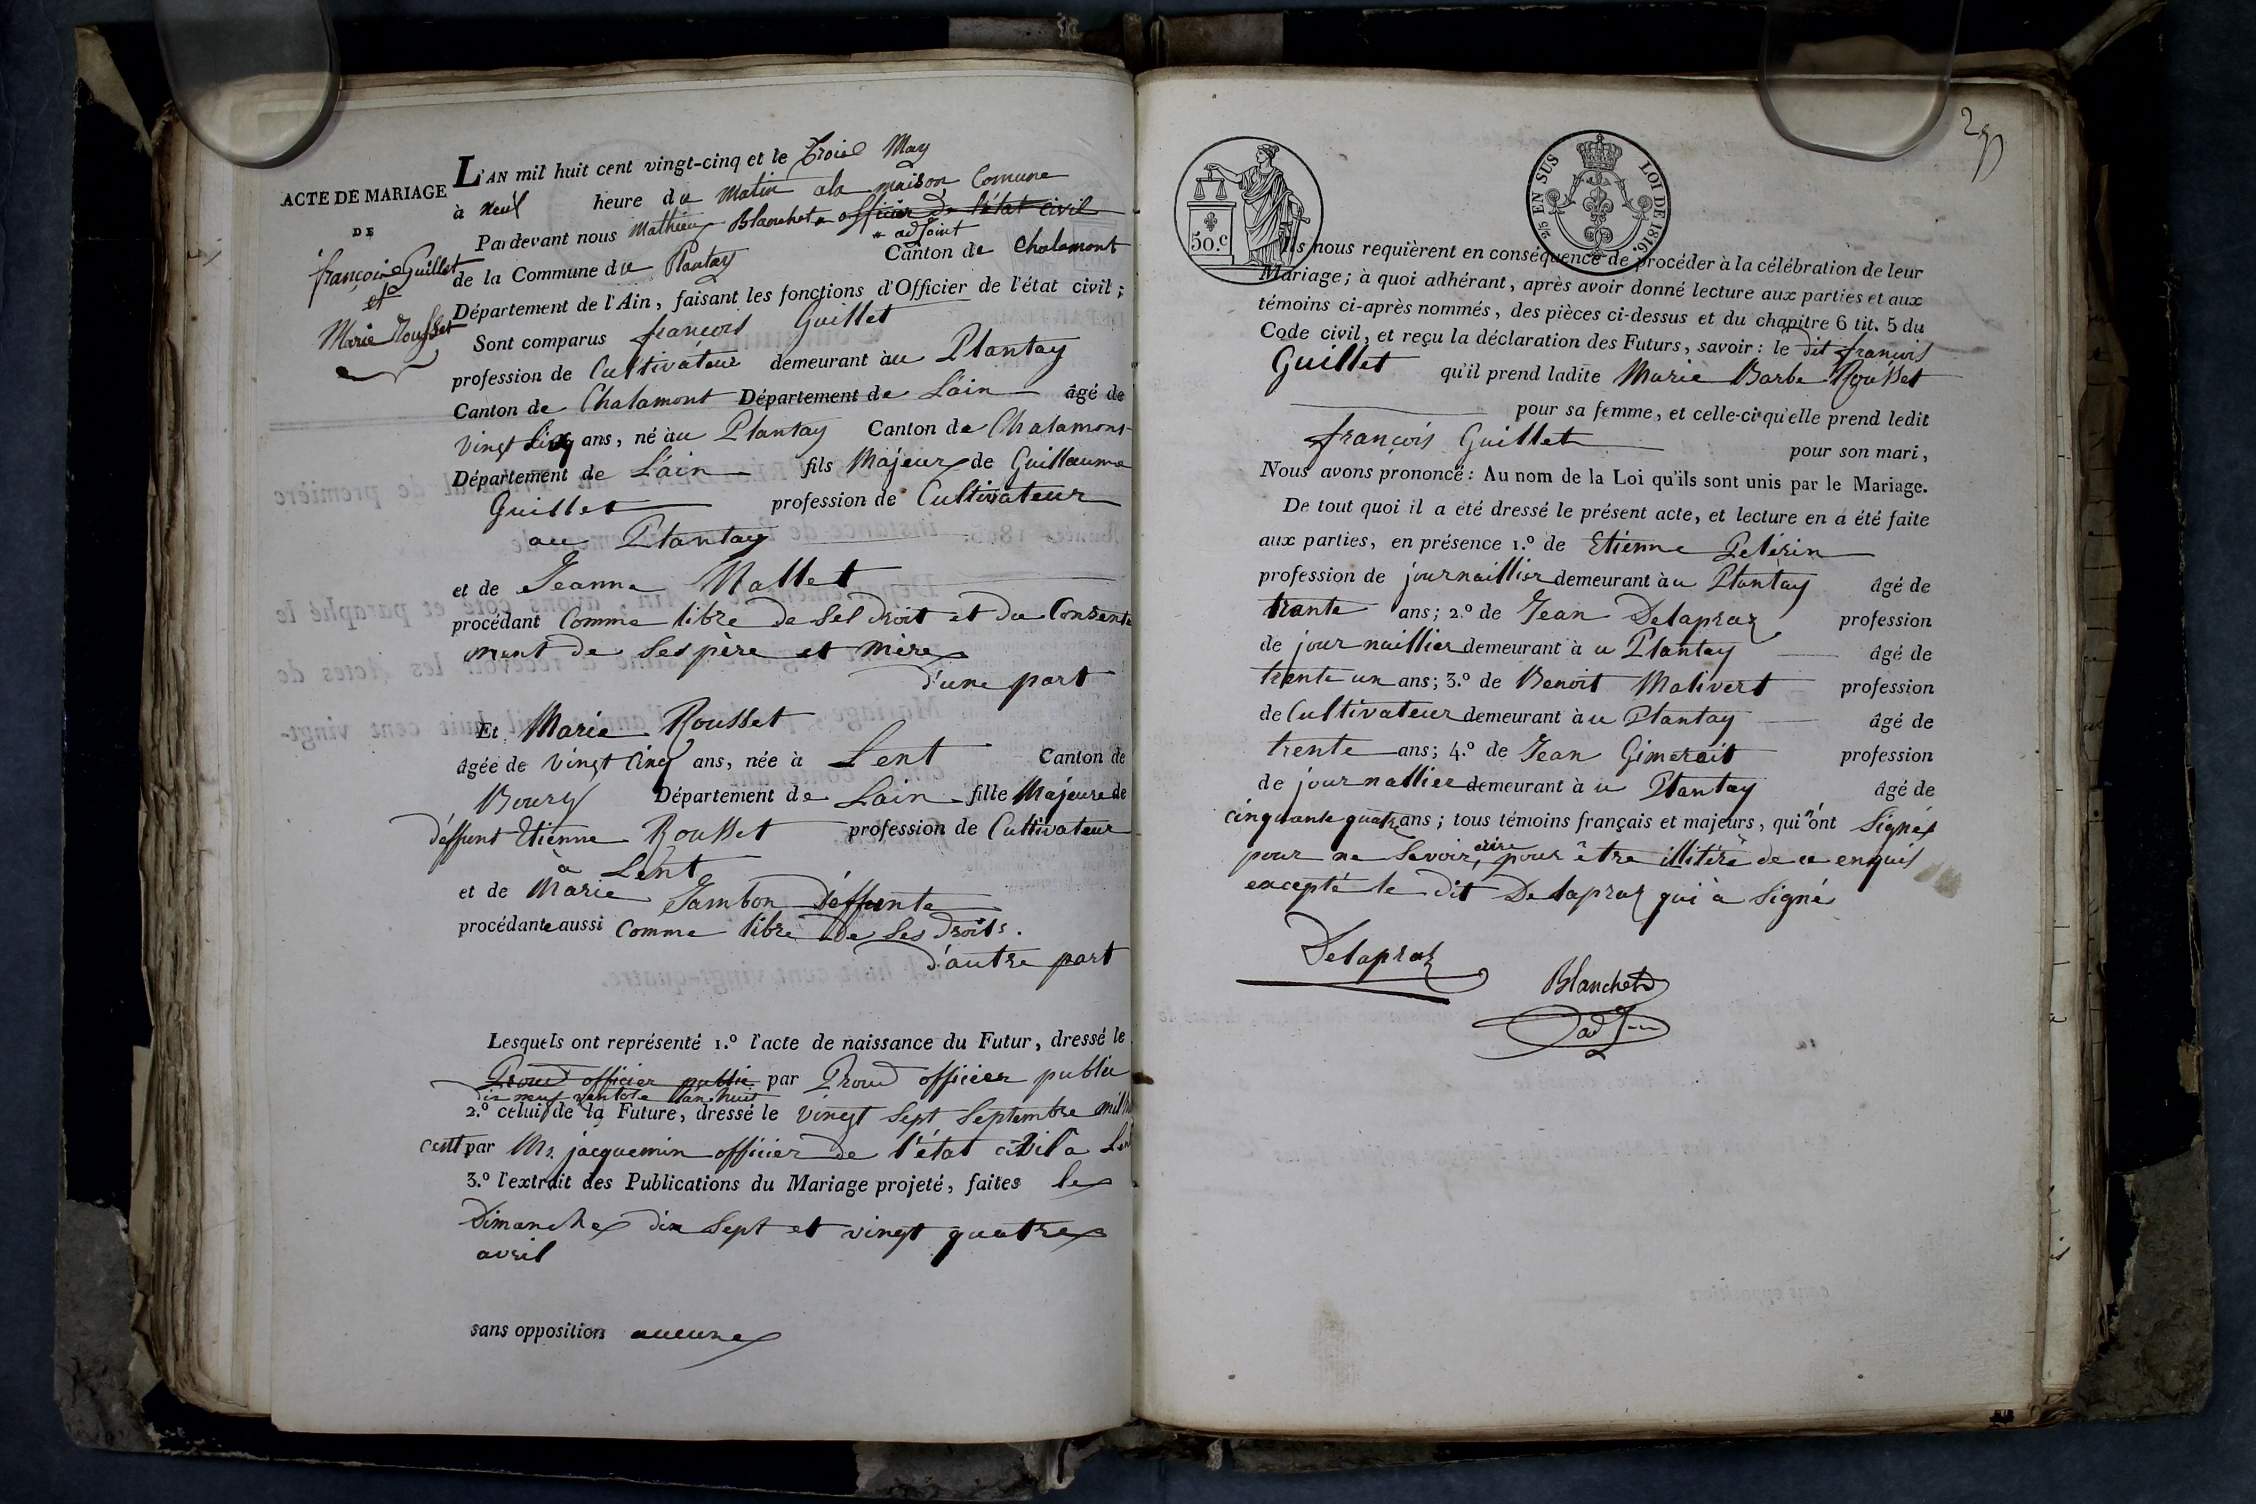 ACTE DE MARIAGE
DE
françois Guillet
et
Marie Rousset
L'AN mil huit cent vingt-cinq et le Trois May
à neuf heure du Matin a la maison Comune
Pardevant nous Mathieu Blanchet officier de l'état civil
adjoint
de la Commune du Plantay Canton de Chalamont
Département de l'Ain, faisant les fonctions d'Officier de l'état civil;
Sont comparus françois Guillet
profession de Cultivateur demeurant àu Plantay
Canton de Chalamont Département de L'ain âgé de
vingt Cinq ans, né àu Plantay Canton de Chalamont
Département de L'ain fils Majeur de Guillaume
Guillet profession de Cultivateur
au Plantay
et de Jeanne Mallet
procédant Comme libre de Ses droit et du Consente
ment de Ses père et Mère
d'une part
Et Marie Rousset
âgée de vingt Cinq ans, née à Lent Canton de
Bourg Département de Lain fille Majeure de
déffunt Etienne Rousset profession de Cultivateur
à Lent
et de Marie Jambon Déffunte
procédante aussi Comme libre de Ses droits.
d'autre part
Lesquels ont représenté 1.º l'acte de naissance du Futur, dressé le
Proud officier public par Proud officier public
dix neuf ventose l'an huit
2.º celui de la Future, dressé le vingt Sept Septembre mil
cent par Mr. jacquemin officier de l'état civil a Lent
3.º l'extrait des Publications du Mariage projeté, faites les
Dimanches dix Sept et vingt quatre
avril
sans opposition aucune
50.c
25 EN SUS LOI DE 1816.
Ils nous requièrent en conséquence de procéder à la célébration de leur
Mariage; à quoi adhérant, après avoir donné lecture aux parties et aux
témoins ci-après nommés, des pièces ci-dessus et du chapitre 6 tit. 5 du
Code civil, et reçu la déclaration des Futurs, savoir: le dit françois
Guillet qu'il prend ladite Marie Barbe Rousset
pour sa femme, et celle-ci qu'elle prend ledit
françois Guillet pour son mari,
Nous avons prononcé: Au nom de la Loi qu'ils sont unis par le Mariage.
De tout quoi il a été dressé le présent acte, et lecture en a été faite
aux parties, en présence 1.º de Etienne Pelérin
profession de journaillier demeurant àu Plantay âgé de
trante ans; 2.º de Jean Delapraz profession
de journaillier demeurant à u Plantay âgé de
trente un ans; 3.º de Benoit Malivert profession
de Cultivateur demeurant àu Plantay âgé de
trente ans; 4.º de Jean Gimerait profession
de journallier demeurant à u Plantay âgé de
cinquante quatre ans; tous témoins français et majeurs, qui n'ont Signés
pour ne Savoir écrire pour être illitéré de ce enquis
excepté le dit Delapraz qui à Signé
Delapraz
Blanchet
adj